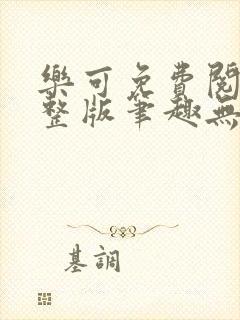 樂可免費閱
整版筆趣無
基調